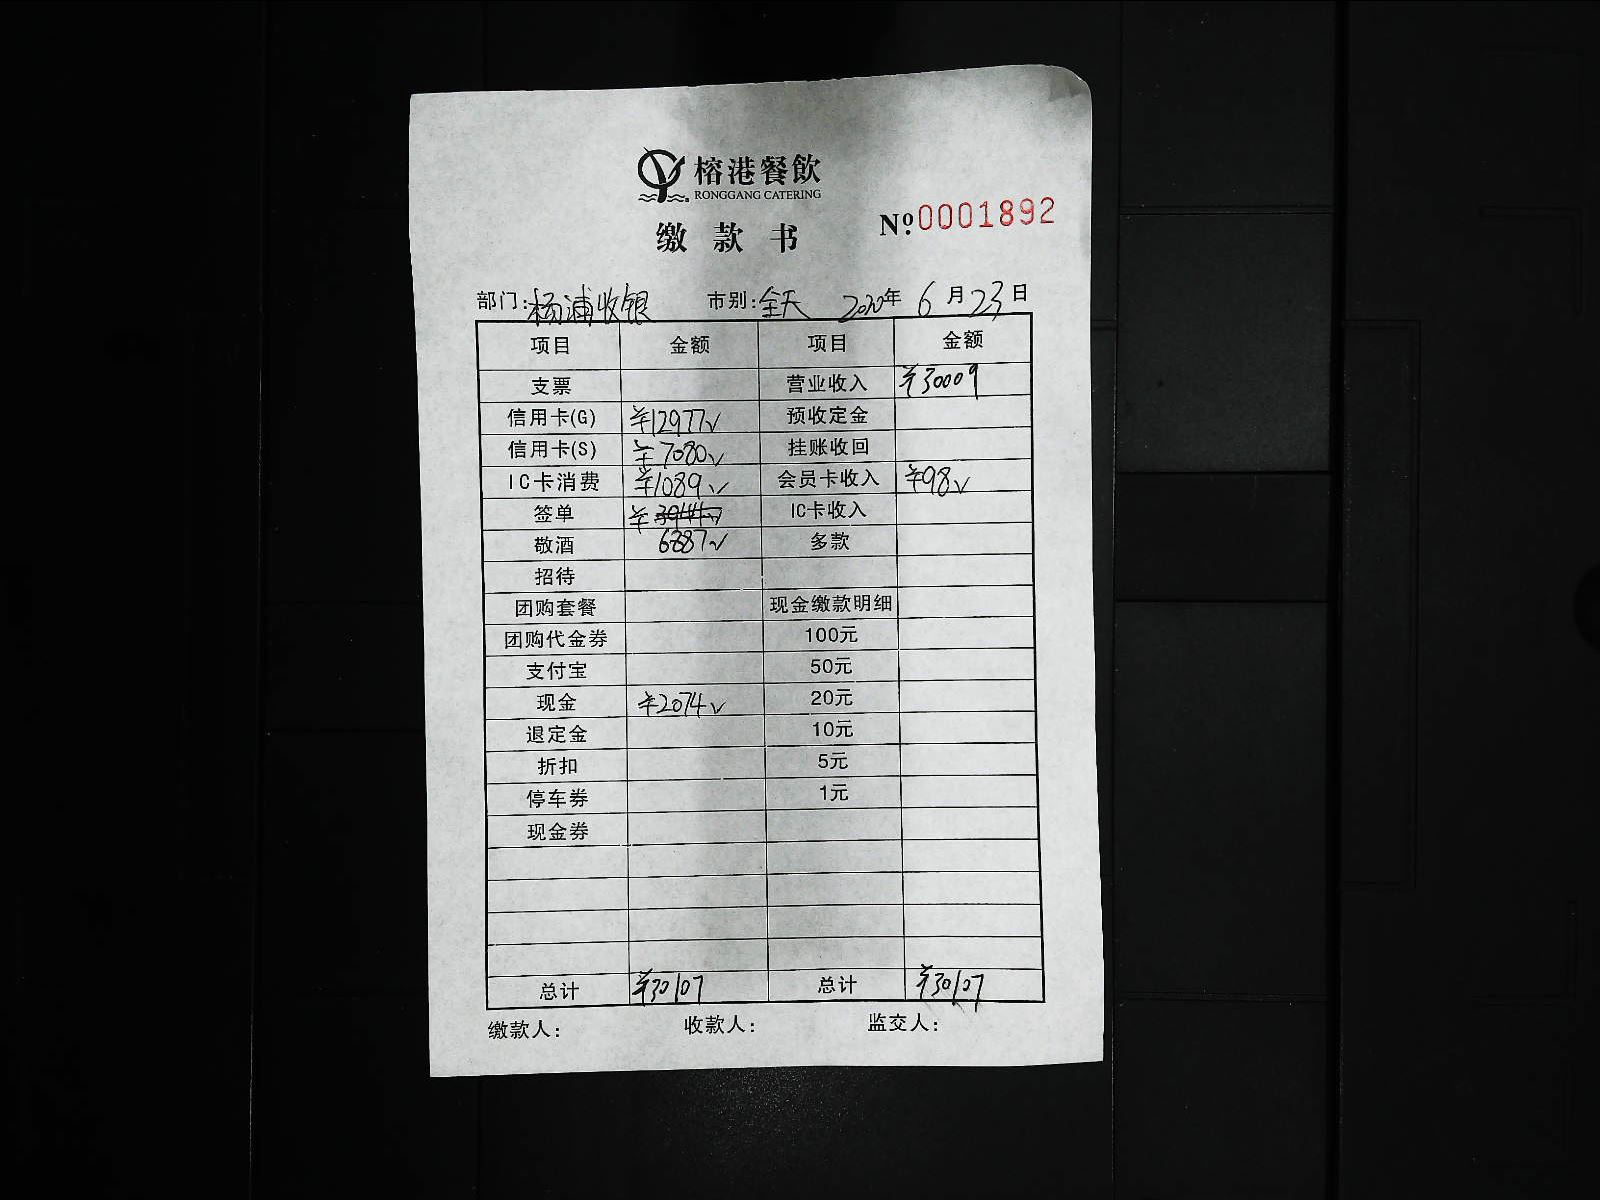 榕港餐飲
RONGGANG CATERING
缴款书
№0001892
部门:杨浦收银 市别:全天 2020年6月23日
项目 金额 项目 金额
支票 营业收入 ¥30009
信用卡(G) ¥12977√ 预收定金
信用卡(S) ¥7080√ 挂账收回
IC卡消费 ¥1089√ 会员卡收入 ¥98√
签单 ¥ IC卡收入
敬酒 6887√ 多款
招待
团购套餐 现金缴款明细
团购代金券 100元
支付宝 50元
现金 ¥2074√ 20元
退定金 10元
折扣 5元
停车券 1元
现金券
总计 ¥30107 总计 ¥30107
缴款人: 收款人: 监交人: